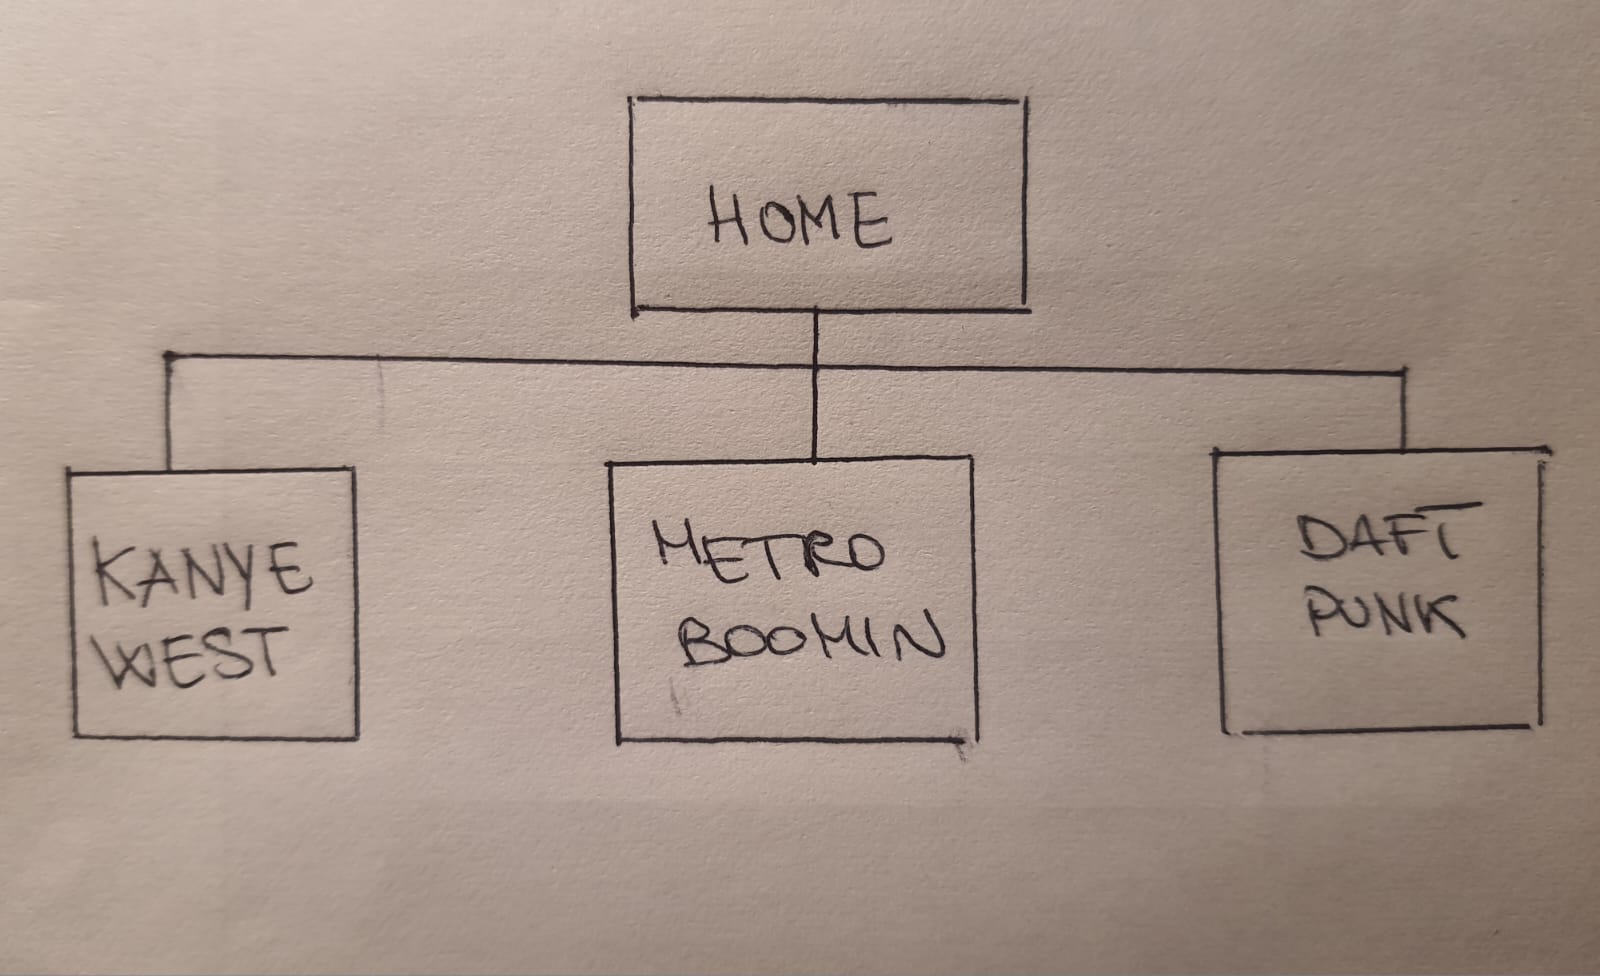 HOME
KANYE
WEST
METRO
BOOMIN
DAFT
PUNK